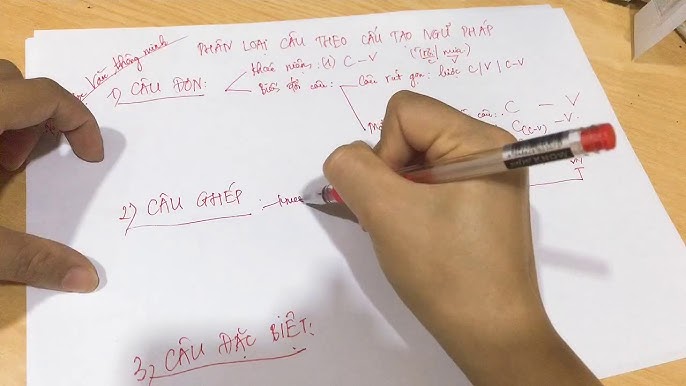 Văn thông minh
PHÂN LOẠI CÂU THEO CẤU TẠO NGỮ PHÁP
1) CÂU ĐƠN: Khái niệm: (1) C - V (Trời/mưa)
Biến đổi câu: Câu rút gọn: lược C | V | C-V
Mở câu: C - V
C(C-V) - V
2) CÂU GHÉP:
3) CÂU ĐẶC BIỆT: